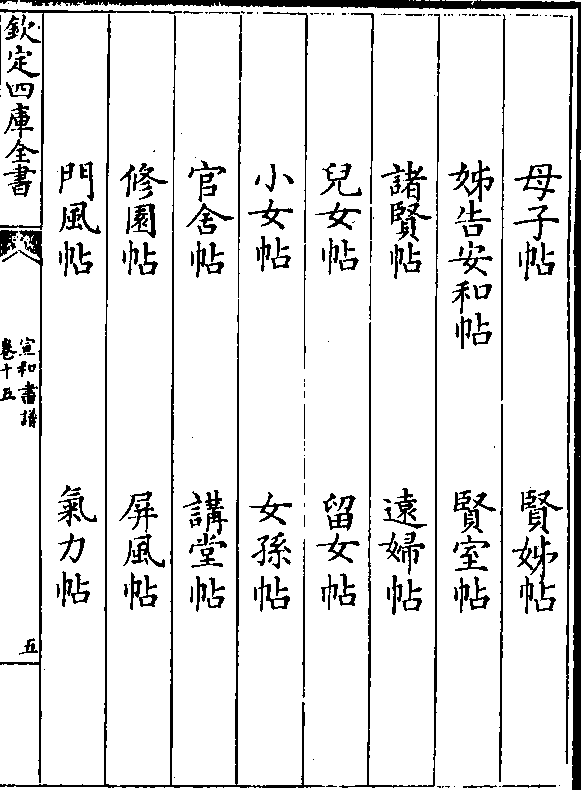 母子帖　賢姊帖
姊告安和帖　賢室帖
諸賢帖　遠婦帖
兒女帖　留女帖
小女帖　女孫帖
官舍帖　講堂帖
修園帖　屏風帖
門風帖　氣力帖
欽定四庫全書
宣和書譜
卷十五
五